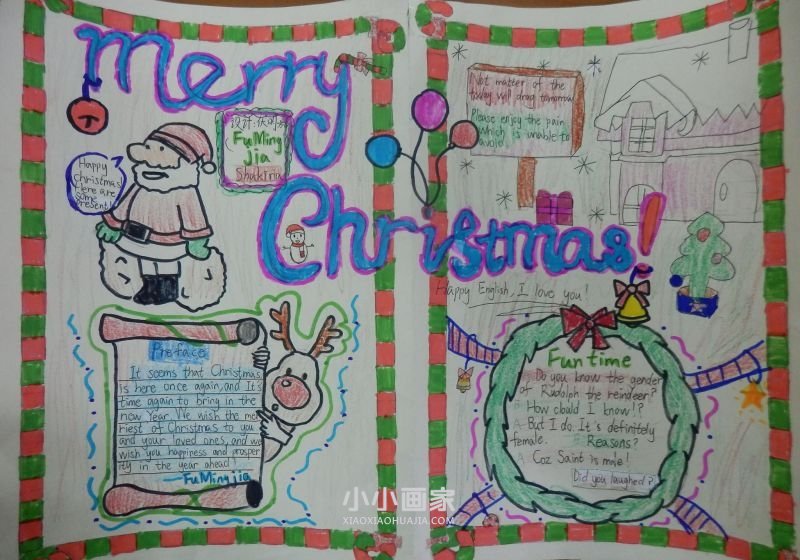 Merry
Christmas!
设计:
Fu Ming
jia
Shaking
Happy
Christmas!
Here are
some
Present!
Not matter of the
today will drag tomorrow
please enjoy the pain
which is unable to
avoid
Happy English, I love you!
Preface
It seems that Christmas
is here once again, and It's
time again to bring in the
new Year. We wish the me
rriest of Christmas to you
and your loved ones, and we
wish you happiness and prosper
ity in the year ahead!
—FuMingjia
Fun time
Do you know the gender
of Rudolph the reindeer?
How cbould I know!?
A. But I do. It's definitely
female. B. Reasons?
A. Coz Saint is male!
Did you laughed?
小小画家
XIAOXIAOHUAJIA.COM